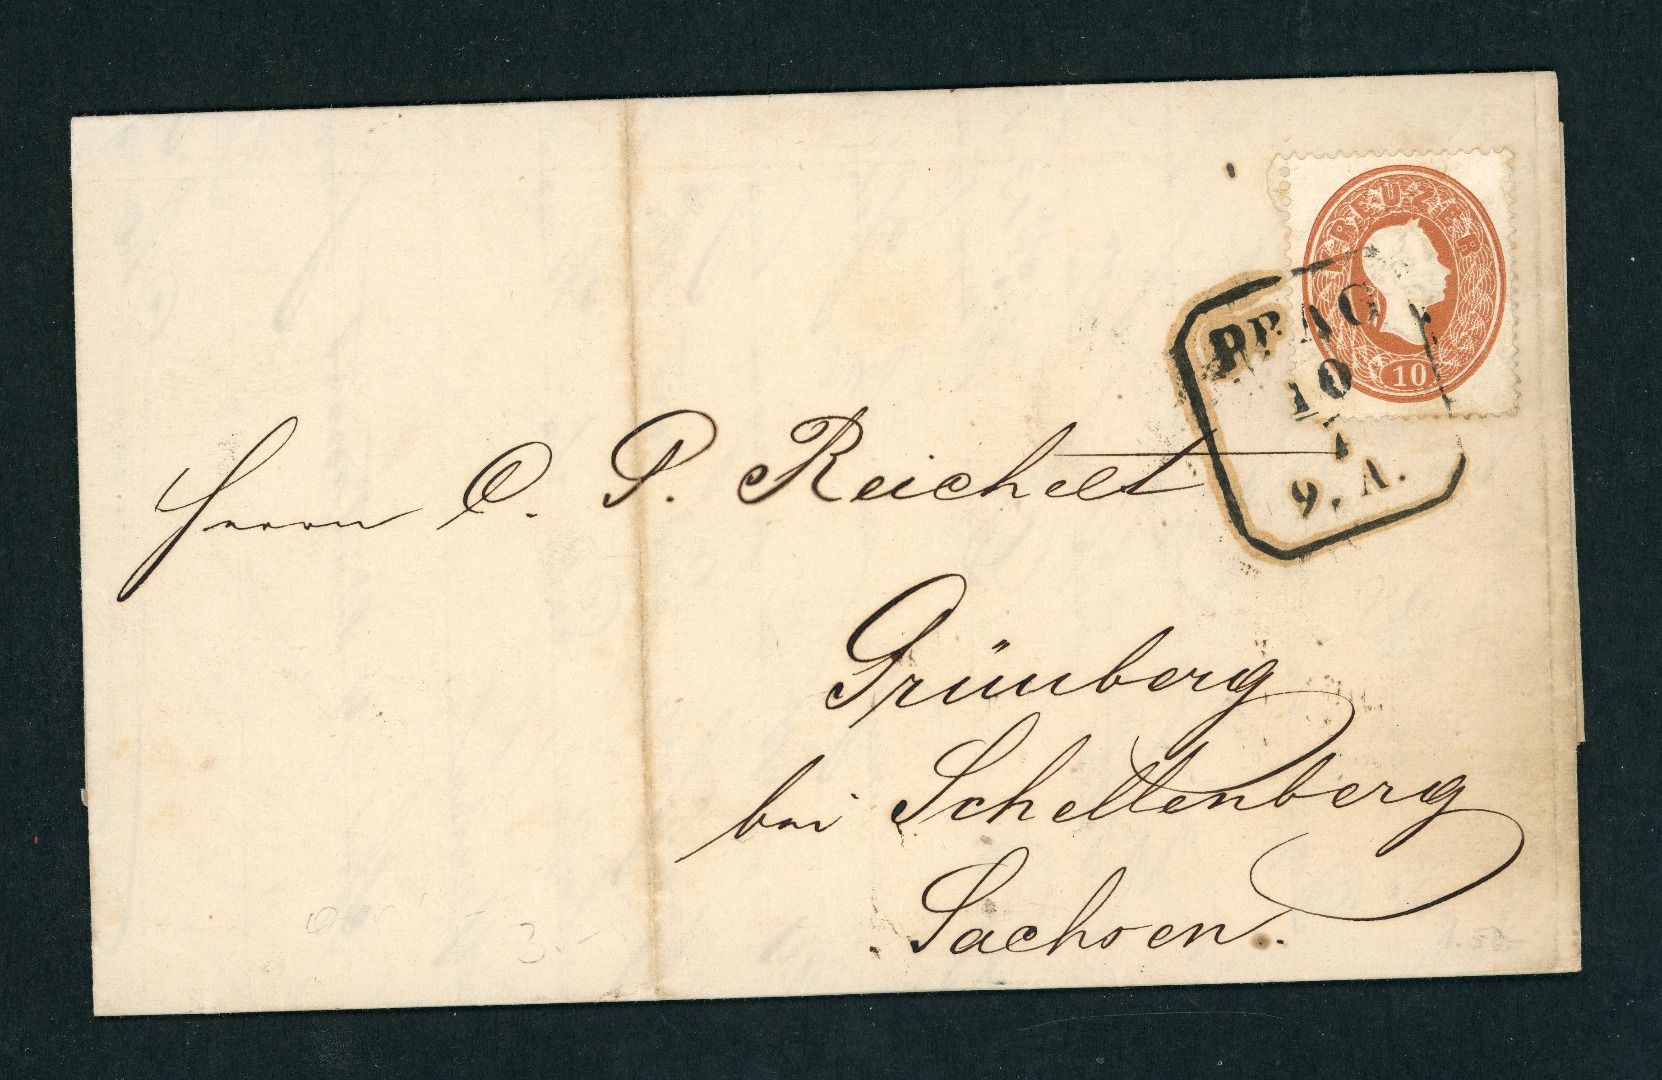 KREUZER
10
PRAG
10
9. A.
Herrn C. P. Reichelt
Grünberg
bei Schellenberg
Sachsen.
3.-